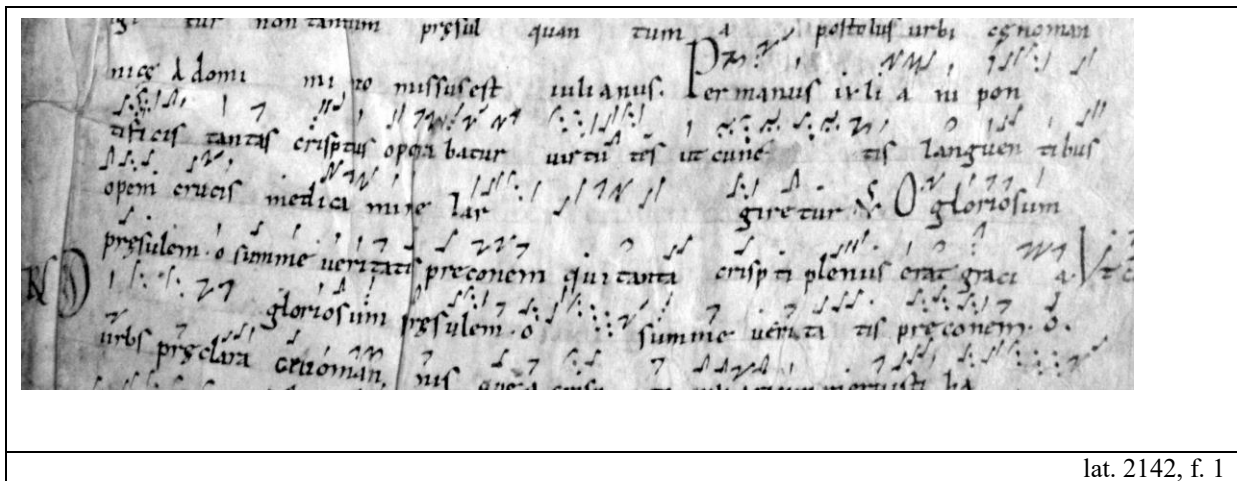 tur non tantum pręsul quan tum a postolus urbi cęnoman
nicę A domi mi no missus est iulianus. Per manus iuli a ni pon
tificis tantas crisptus opera batur uirtu tes ut cunc tis languen tibus
opem crucis medica mine lar giretur. O gloriosum
pręsulem. o summe ueritatis preconem qui tanta crispti plenus erat graci a. Vt c
O gloriosum pręsulem. o summe uerita tis pręconem. o.
urbs pręclara cenoman nis
lat. 2142, f. 1